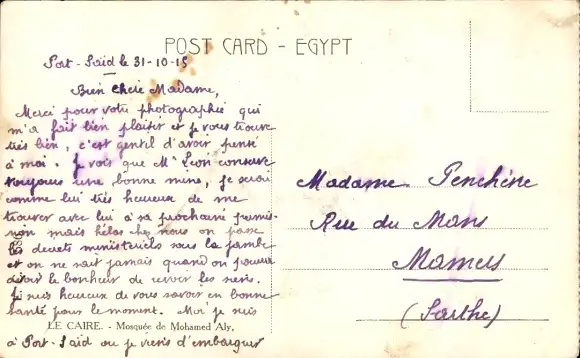 POST CARD - EGYPT
Port-Saïd le 31-10-15
Bien chère Madame,
Merci pour votre photographie qui
m'a fait bien plaisir et je vous trouve
très bien, c'est gentil d'avoir pensé
à moi. Je vois que Mr Léon conserve
toujours une bonne mine, je serai
comme lui très heureux de me
trouver avec lui à sa prochaine permis-
sion mais hélas chez nous on passe
les décrets ministeriels sous la jambe
et on ne sait jamais quand on pourra
avoir le bonheur de revoir les siens.
Je suis heureux de vous savoir en bonne
santé pour le moment. Moi je suis
à Port-Saïd ou je viens d'embarquer
LE CAIRE. - Mosquée de Mohamed Aly.
Madame Penchène
Rue du Mans
Mamers
(Sarthe)